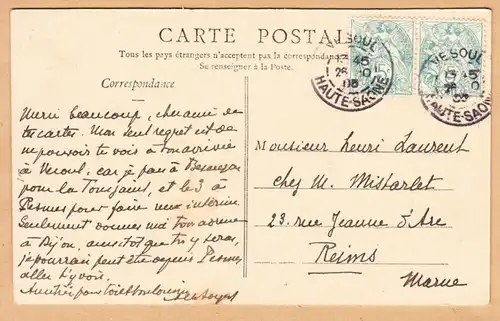 CARTE POSTALE
Tous les pays étrangers n'acceptent pas la correspondance
Se renseigner à la Poste.
Correspondance
VESOUL
15 45
26 10
08
HAUTE-SAONE
VESOUL
15 45
26 10
08
HAUTE-SAONE
Merci beaucoup, cher ami de
ta carte. Mon seul regret est de
ne pouvoir te voir à ton arrivée
à Vesoul, car je pars à Besançon
pour la Toussaint, et le 3 à
Pesmes pour faire un intérim
Seulement donnes moi ton adresse
à Dijon, aussitôt que tu y seras,
je pourrai peut être depuis Pesmes
aller t'y voir.
Monsieur Henri Laurent
chez M. Mistarlet
23, rue Jeanne d'Arc
Reims
Marne